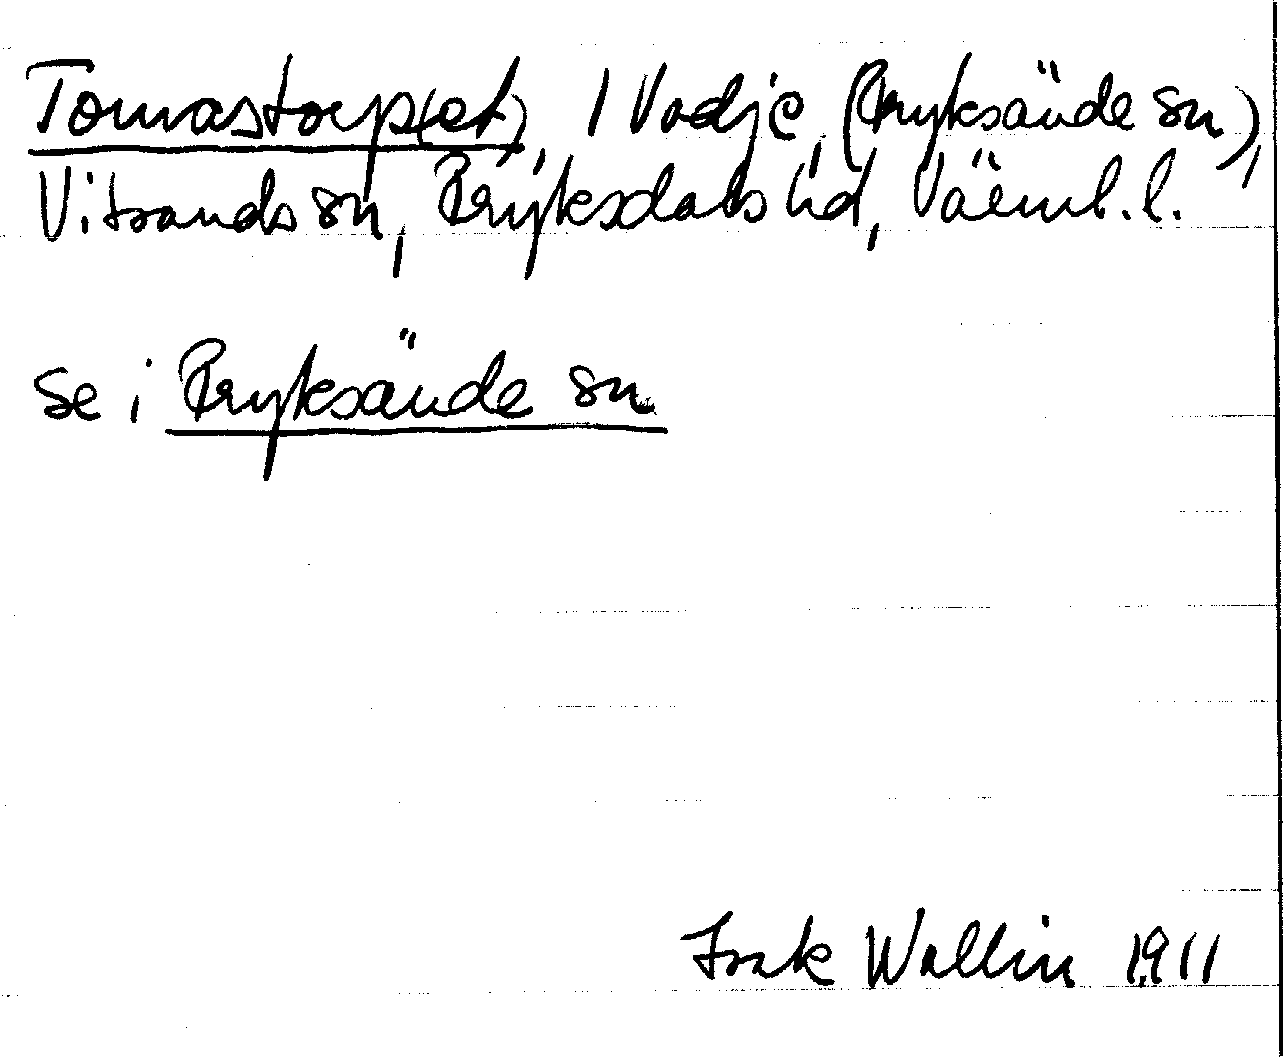 Tomastorp(et), 1 Vadje, (Fryksände sn),
Vitsands sn, Fryksdals hd, Värml. l.
se i Fryksände sn
Isak Wallin 1911